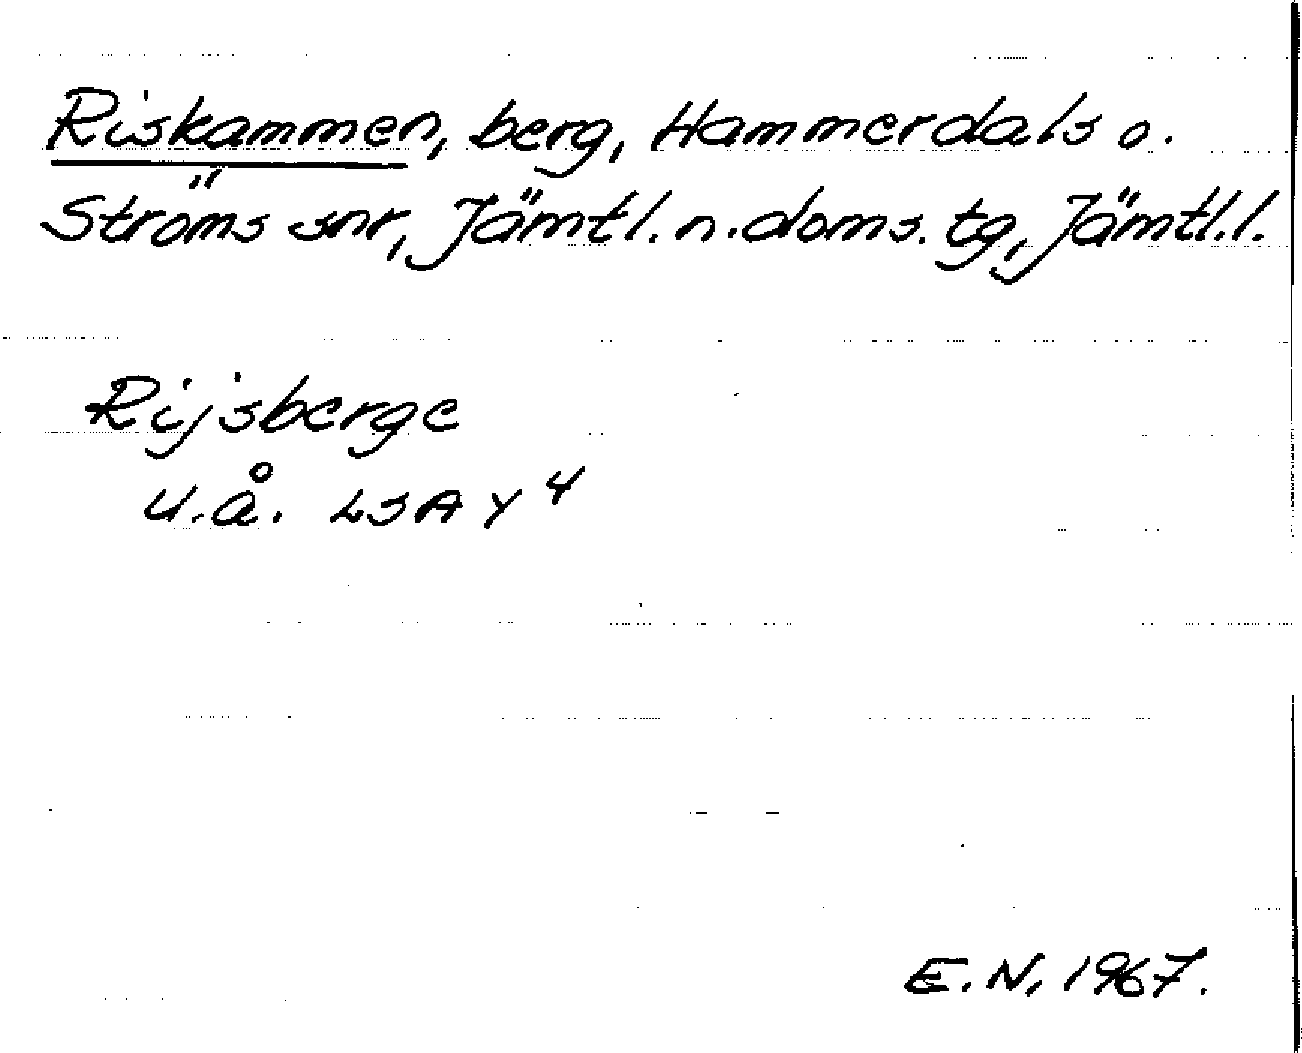 Riskammen, berg, Hammerdals o.
Ströms snr, Jämtl. n. doms. tg, Jämtl. l.
Rijsberge
u.å. LSA Y 4
E.N. 1967.